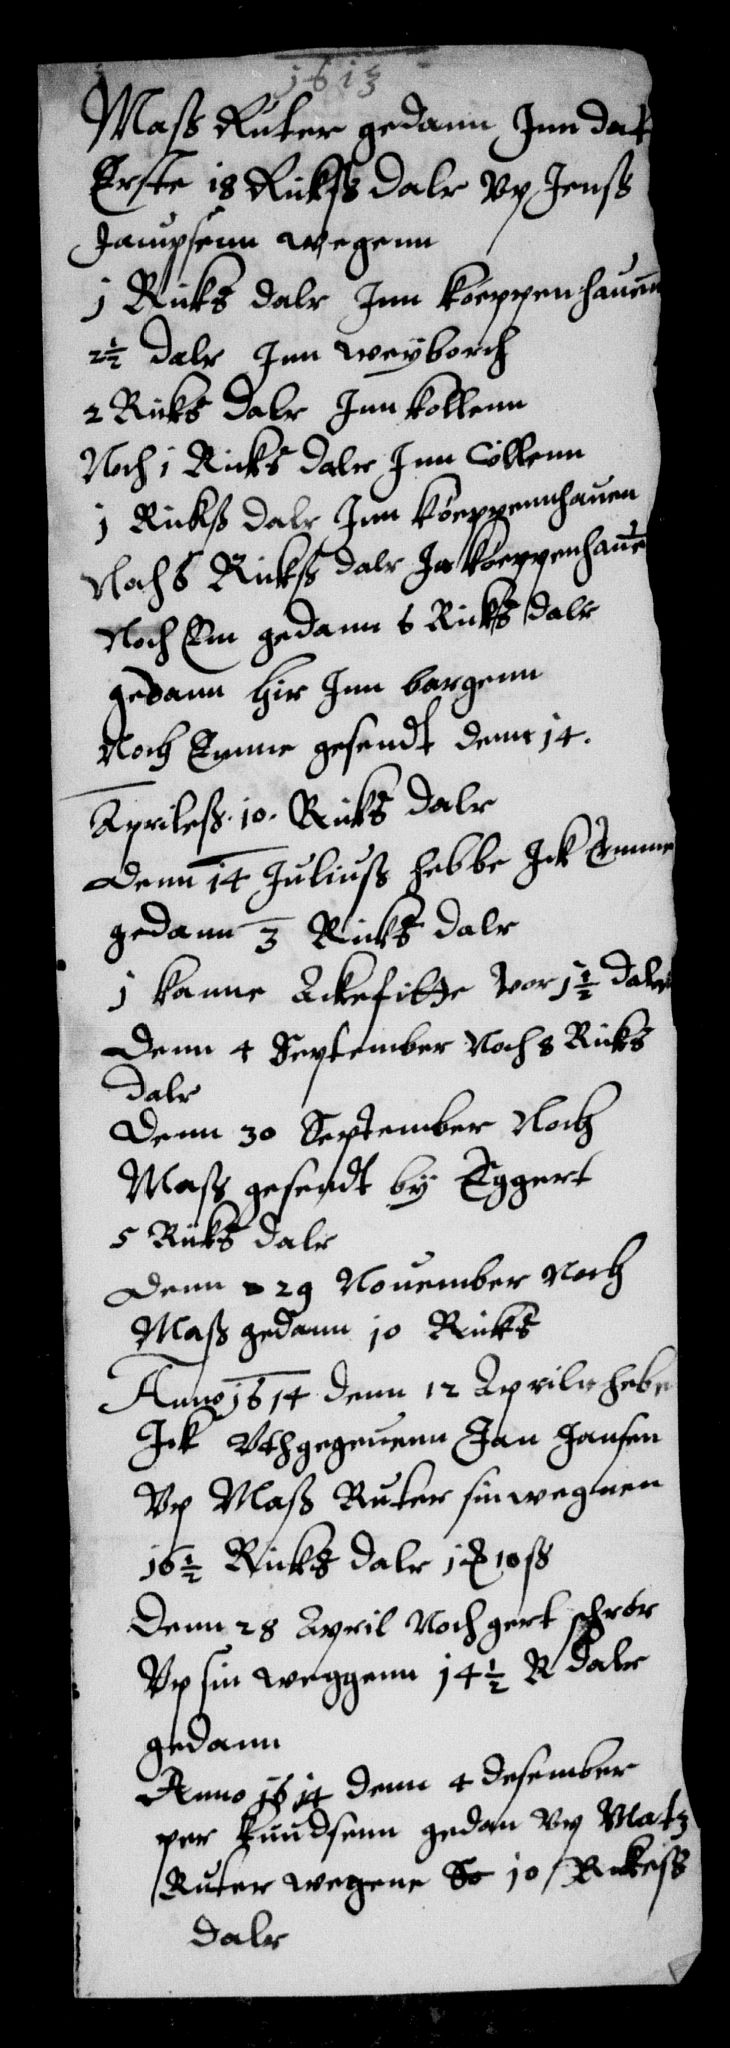 1613
Mass Ruter gedann Jnn dat
Erste 18 Rickss dalr Vp Jenss
Jaupsenn wegenn
1 Ricks dalr Jnn koeppenhauenn
2½ dalr Jnn weyborch
2 Ricks dalr Jnn kollenn
Noch 1 Ricks dalr Jnn Collenn
1 Rickss dalr Jnn koeppennhauen
Noch 6 Rickss dalr Jn koeppenhauen
Noch Em gedann 6 Ricks dalr
gedann hir Jnn bargenn
Noch Emme gesendt denn 14.
Apriless. 10. Ricks dalr
Denn 14 Juliuss hebbe Jck Emme
gedann 3 Ricks dalr
1 kanne Ackefitte vor 1½ daler
Denn 4 September Noch 8 Ricks
dalr
Denn 30 September Noch
Mass gesendt by Eggert
5 Ricks dalr
Denn 29 Nouember Noch
Mass gedann 10 Ricks
Anno 1614 denn 12 Aprill hebe
Jck Vthgegeuenn Jan Jansen
Vp Mass Ruter sin wegnen
16½ Ricks dalr 10 ss
Denn 28 April Noch gert schror
Vp sin weggenn 14½ R dalr
gedann
Anno 1614 denn 4 desember
per knudsenn gedan Vp Matz
Ruter wegene 10 Rickess
dalr